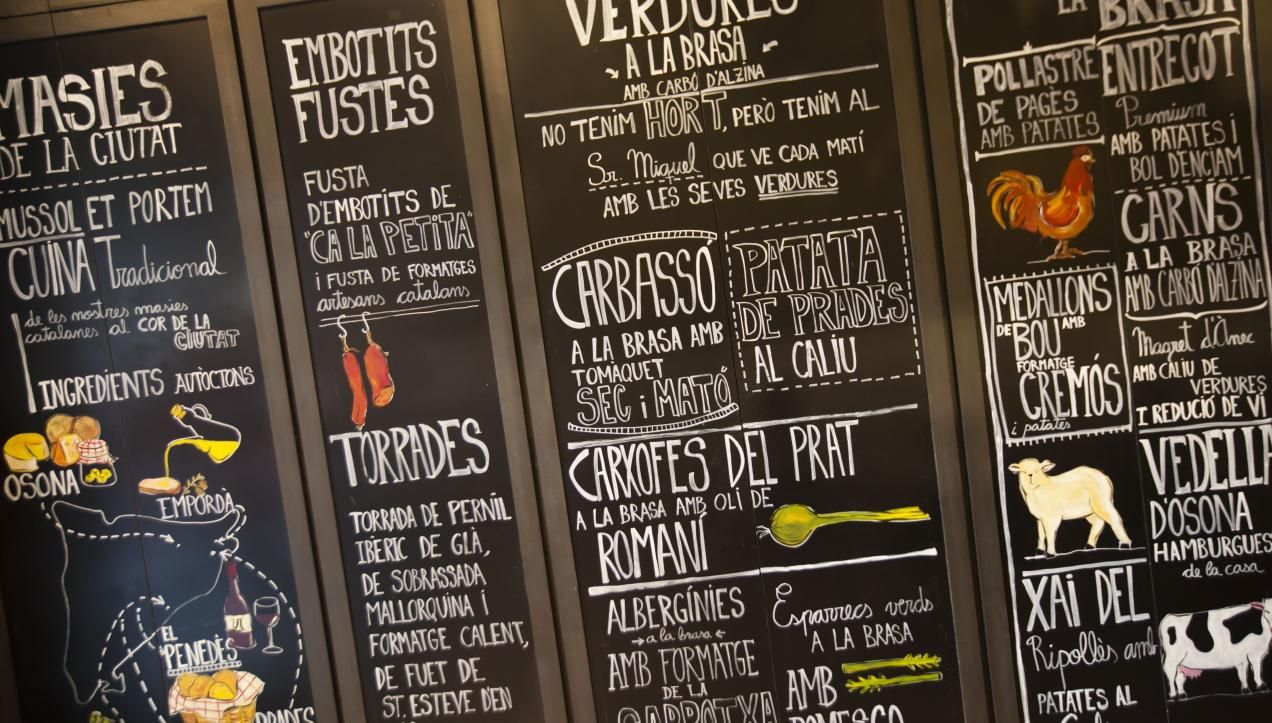 MASIES
DE LA CIUTAT
MUSSOL ET PORTEM
CUINA Tradicional
de les nostres masies
catalanes al COR DE LA
CIUTAT
INGREDIENTS AUTÒCTONS
OSONA
EMPORDÀ
EL
PENEDÈS
EMBOTITS
FUSTES
FUSTA
D'EMBOTITS DE
"CA LA PETITA"
I FUSTA DE FORMATGES
artesans catalans
TORRADES
TORRADA DE PERNIL
IBÈRIC DE GLÀ,
DE SOBRASSADA
MALLORQUINA I
FORMATGE CALENT,
DE FUET DE
ST. ESTEVE D'EN
VERDURES
A LA BRASA
AMB CARBÓ D'ALZINA
NO TENIM HORT, PERÒ TENIM AL
Sr. Miquel QUE VE CADA MATÍ
AMB LES SEVES VERDURES
CARBASSÓ
A LA BRASA AMB
TOMAQUET
SEC i MATÓ
PATATA
DE PRADES
AL CALIU
CARXOFES DEL PRAT
A LA BRASA AMB OLI DE
ROMANÍ
ALBERGÍNIES
a la brasa
AMB FORMATGE
DE LA
GARROTXA
Esparrecs verds
A LA BRASA
AMB
ROMESCO
LA
BRASA
POLLASTRE
DE PAGÈS
AMB PATATES
MEDALLONS
DE BOU AMB
FORMATGE
CREMÓS
i patates
XAI DEL
Ripollès amb
PATATES AL
ENTRECOT
Premium
AMB PATATES I
BOL D'ENCIAM
CARNS
A LA BRASA
AMB CARBÓ D'ALZINA
Magret d'Ànec
AMB CALIU DE
VERDURES
I REDUCIÓ DE VI
VEDELLA
D'OSONA
HAMBURGUES
de la casa